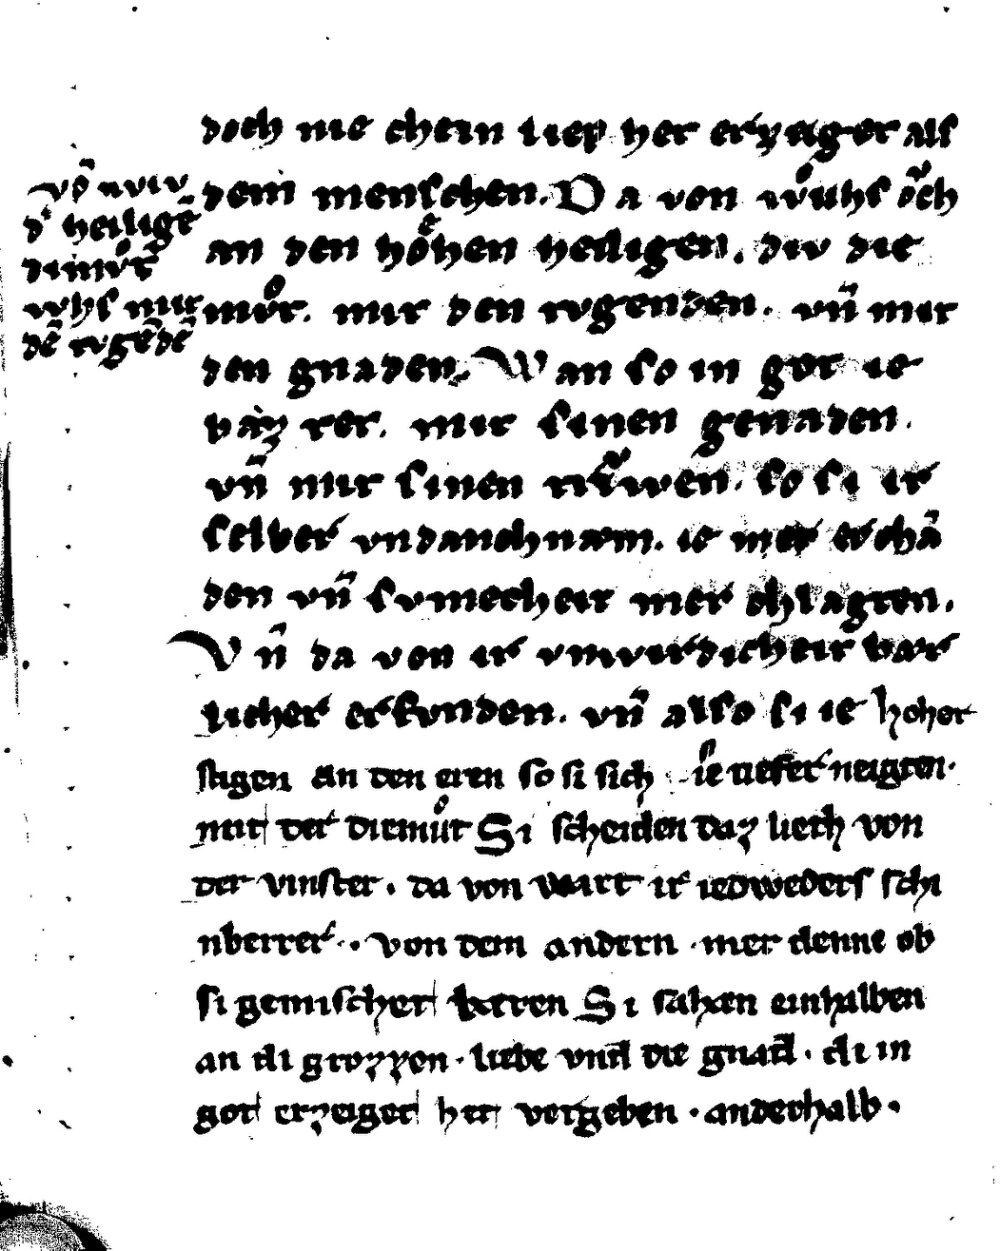 doch nie chein liep her erzaiger als
võ wiv
d' heiligẽ
dimuͦt
whs mit
dẽ tvgẽdẽ
dem menschen. Da von wuͦhs oͮch
an den hoͤhen heiligen. div die
muͦt. mit den tvgenden. vñ mit
den gnaden. Wan so in got ie
baz tet. mit sinen genaden.
vñ mit sinen triwen. so si ir
selber vndanchnæm. ie mer er chã
den vñ svmecheit mer chlagten.
Vñ da von ir vnwirdicheit bær
licher erkvnden. vñ also si ie hoher
stigen an den eren so si sich ie tiefer neigten.
mit der diemuͤt Si scheiden daz lieth von
der vinster. da von wart ir iedweders schi
nberrer. von dem andern. mer denne ob
si gemischet weren Si sahen einhalben
an di grozzen. liebe vnd die gnad. di in
got erzeiget het vergeben. anderhalb.